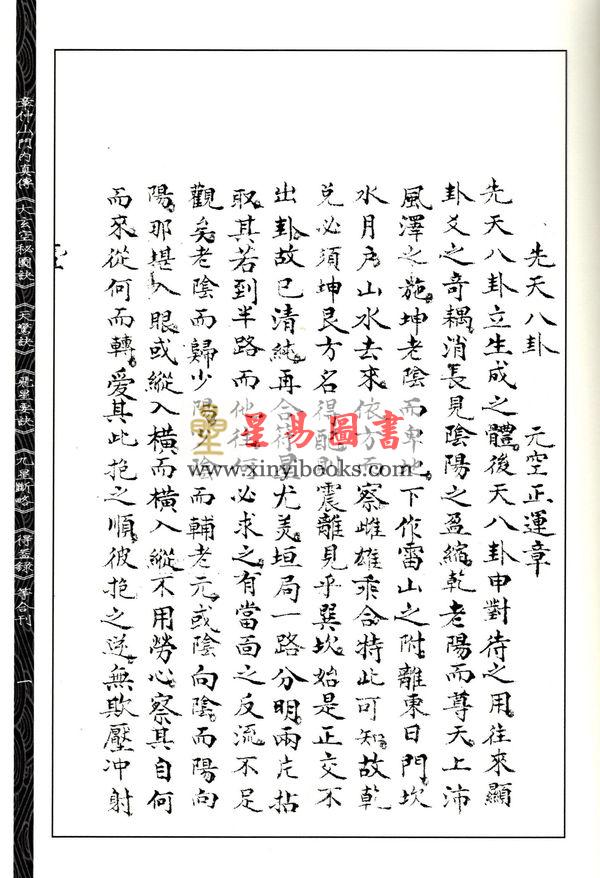 先天八卦　元空正運章
先天八卦立生成之體後天八卦申對待之用往來顯
卦爻之奇耦消長見陰陽之盈縮乾老陽而尊天上沛
風澤之施坤老陰而卑地下作雷山之附離東日門坎
水月戶山水去來依方而察雌雄乖合特此可知故乾
兌必須坤艮方名得配震離見乎巽坎始是正交不
出卦故已清純再合待星尤美垣局一路分明兩片拈
取其若到半路而他往何必求之有當面之反流不足
觀矣老陰而歸少陽少而輔老元或陰向陰而陽向
陽那堪入眼或縱入橫而橫入縱不用勞心察其自何
而來從何而轉愛其此抱之順彼抱之逆無欺壓冲射
章仲山門內真傳《大玄空秘圖訣》《天驚訣》《飛星要訣》《九星斷略》《得益錄》等合刊
一
星易圖書
www.xinyibooks.com